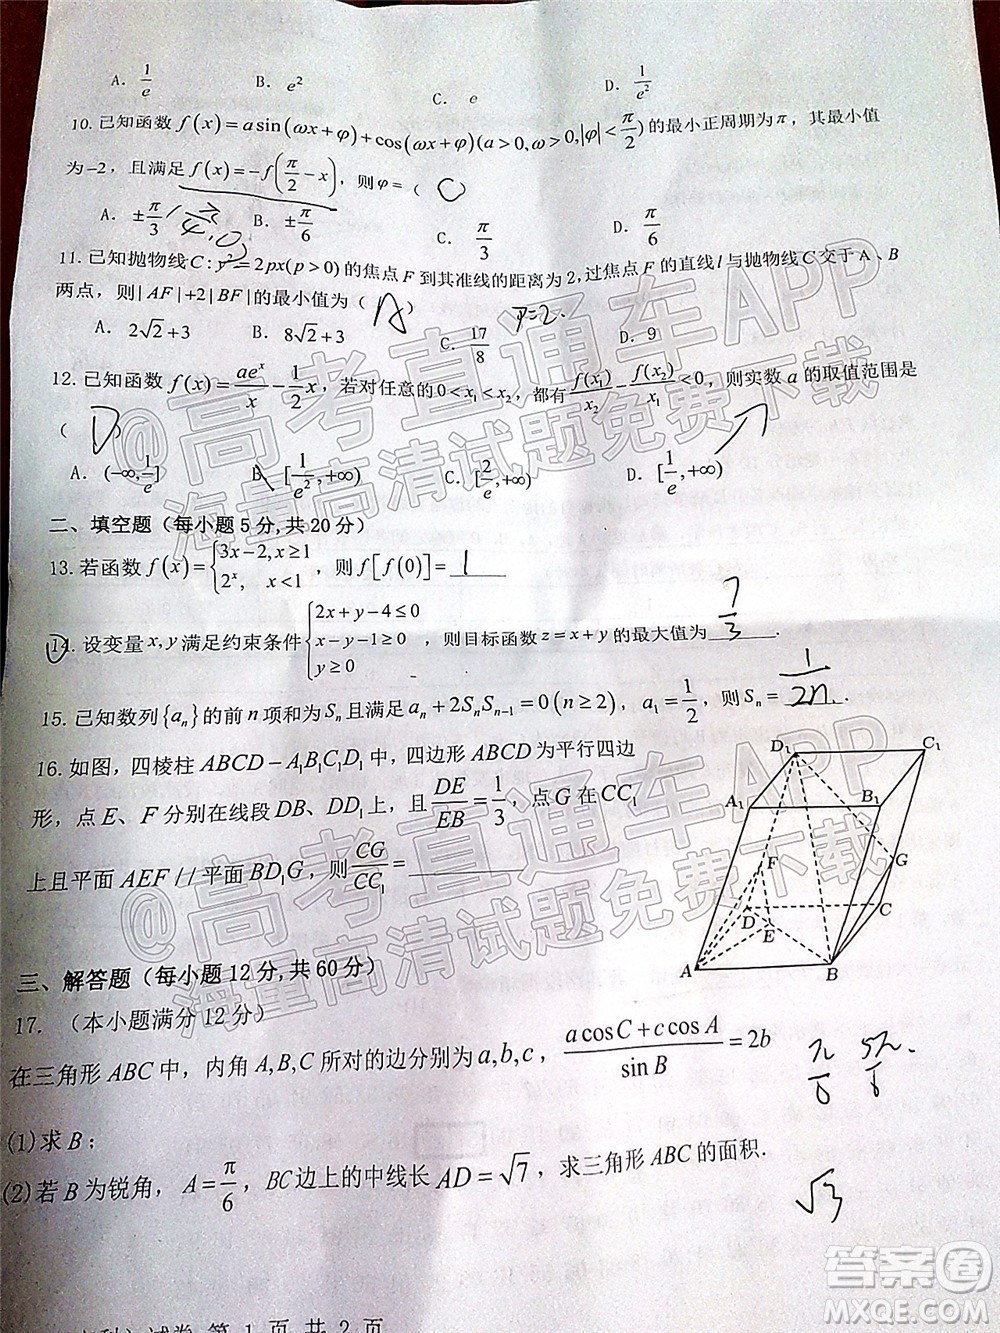 A. 1/e  B. e²  C. e  D. 1/e²
10. 已知函数 f(x)=asin(ωx+φ)+cos(ωx+φ)(a>0,ω>0,|φ|<π/2)的最小正周期为π，其最小值
为-2，且满足f(x)=-f(π/2-x)，则φ=（ C ）
A. ±π/3  B. ±π/6  C. π/3  D. π/6
11. 已知抛物线C:y²=2px(p>0)的焦点F到其准线的距离为2,过焦点F的直线l与抛物线C交于A、B
两点，则|AF|+2|BF|的最小值为（ A ）
P=2.
A. 2√2+3  B. 8√2+3  C. 17/8  D. 9
12. 已知函数f(x)=ae^x/x-1/2x，若对任意的0<x₁<x₂，都有f(x₁)/x₂-f(x₂)/x₁<0，则实数a的取值范围是
（ D ）
A. (-∞,1/e]  B. [1/e²,+∞)  C. [2/e,+∞)  D. [1/e,+∞)
二、填空题（每小题5分,共20分）
13. 若函数f(x)={3x-2,x≥1
2^x, x<1，则f[f(0)]= 1
14. 设变量x,y满足约束条件{2x+y-4≤0
x-y-1≥0，则目标函数z=x+y的最大值为 7/3 .
y≥0
15. 已知数列{aₙ}的前n项和为Sₙ且满足aₙ+2SₙSₙ₋₁=0(n≥2)，a₁=1/2，则Sₙ= 1/2n .
16. 如图，四棱柱ABCD-A₁B₁C₁D₁中，四边形ABCD为平行四边
形，点E、F分别在线段DB、DD₁上，且DE/EB=1/3，点G在CC₁
上且平面AEF//平面BD₁G，则CG/CC₁=
D₁ C₁
A₁ B₁
F G
D C
E
A B
三、解答题（每小题12分,共60分）
17. （本小题满分12分）
在三角形ABC中，内角A,B,C所对的边分别为a,b,c，(acosC+ccosA)/sinB=2b
π/6 5π/6.
(1)求B；
(2)若B为锐角，A=π/6，BC边上的中线长AD=√7，求三角形ABC的面积.
√3
试卷 第1页 共2页
@高考直通车APP
海量高清试题免费下载
@高考直通车APP
海量高清试题免费下载
答案圈
MXQE.COM